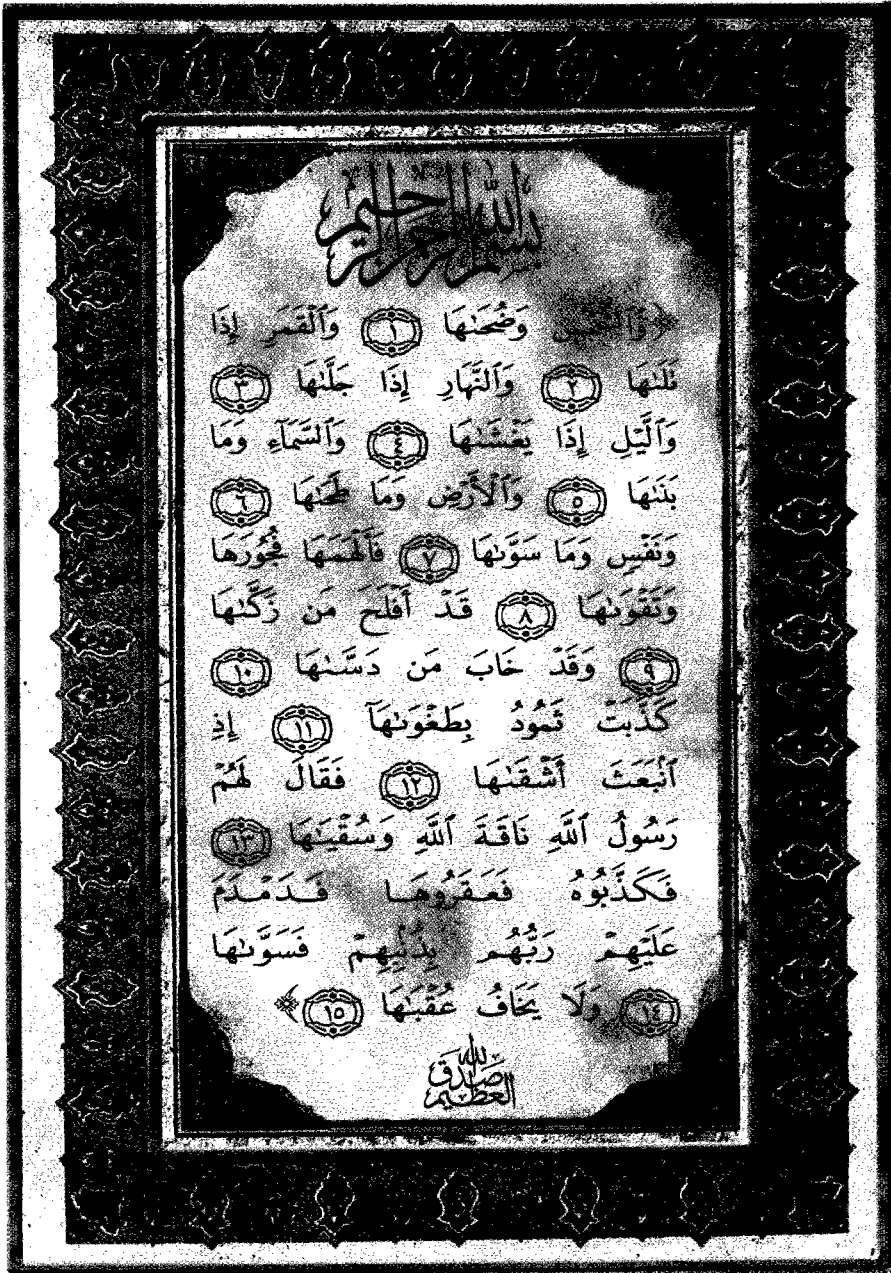 بسم الله الرحمن الرحيم
﴿وَٱلشَّمۡسِ وَضُحَىٰهَا ١ وَٱلۡقَمَرِ إِذَا
تَلَىٰهَا ٢ وَٱلنَّهَارِ إِذَا جَلَّىٰهَا ٣
وَٱلَّيۡلِ إِذَا يَغۡشَىٰهَا ٤ وَٱلسَّمَآءِ وَمَا
بَنَىٰهَا ٥ وَٱلۡأَرۡضِ وَمَا طَحَىٰهَا ٦
وَنَفۡسٖ وَمَا سَوَّىٰهَا ٧ فَأَلۡهَمَهَا فُجُورَهَا
وَتَقۡوَىٰهَا ٨ قَدۡ أَفۡلَحَ مَن زَكَّىٰهَا
٩ وَقَدۡ خَابَ مَن دَسَّىٰهَا ١٠
كَذَّبَتۡ ثَمُودُ بِطَغۡوَىٰهَآ ١١ إِذِ
ٱنۢبَعَثَ أَشۡقَىٰهَا ١٢ فَقَالَ لَهُمۡ
رَسُولُ ٱللَّهِ نَاقَةَ ٱللَّهِ وَسُقۡيَٰهَا ١٣
فَكَذَّبُوهُ فَعَقَرُوهَا فَدَمۡدَمَ
عَلَيۡهِمۡ رَبُّهُم بِذَنۢبِهِمۡ فَسَوَّىٰهَا
١٤ وَلَا يَخَافُ عُقۡبَٰهَا ١٥﴾
صدق الله العظيم